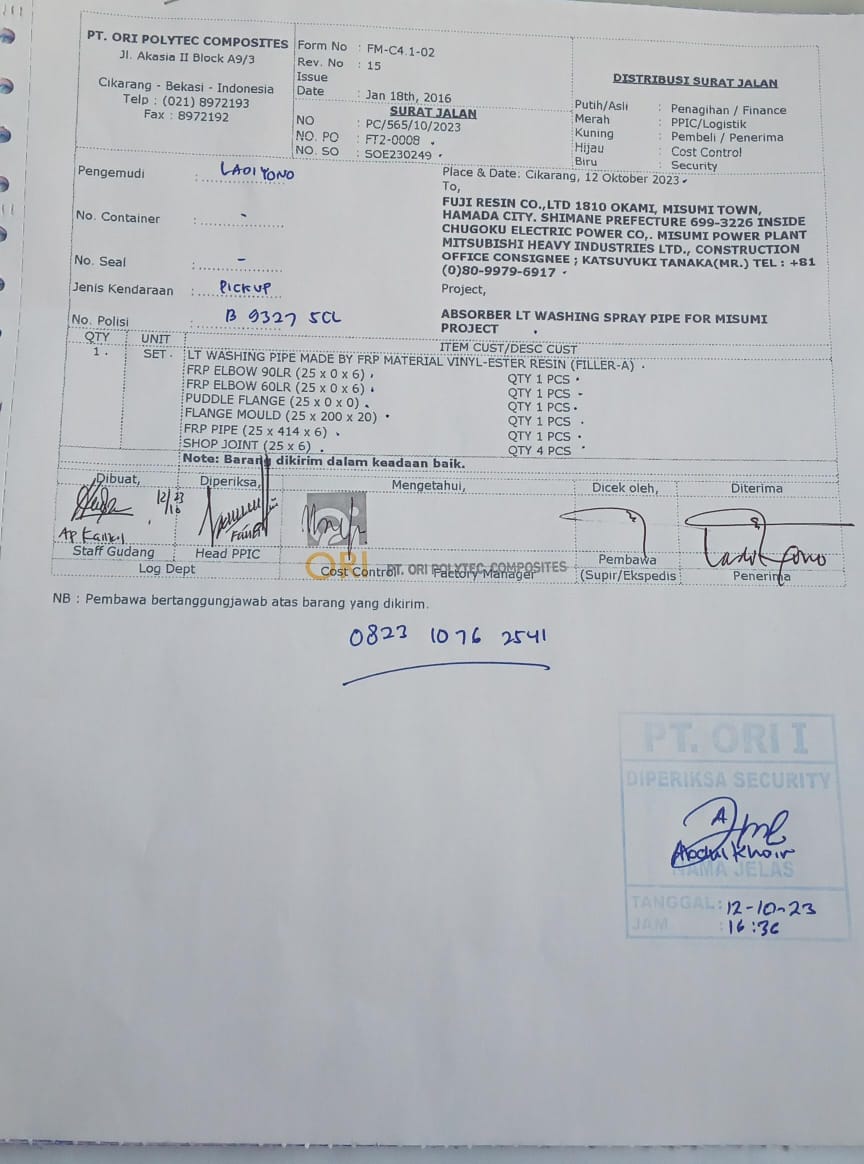 PT. ORI POLYTEC COMPOSITES
Jl. Akasia II Block A9/3
Cikarang - Bekasi - Indonesia
Telp : (021) 8972193
Fax : 8972192
Form No : FM-C4.1-02
Rev. No : 15
Issue
Date : Jan 18th, 2016
SURAT JALAN
NO : PC/565/10/2023
NO. PO : FT2-0008
NO. SO : SOE230249
DISTRIBUSI SURAT JALAN
Putih/Asli : Penagihan / Finance
Merah : PPIC/Logistik
Kuning : Pembeli / Penerima
Hijau : Cost Control
Biru : Security
Pengemudi : LADIYONO
No. Container : -
No. Seal : -
Jenis Kendaraan : PICKUP
No. Polisi : B 9327 SCL
Place & Date: Cikarang, 12 Oktober 2023
To,
FUJI RESIN CO.,LTD 1810 OKAMI, MISUMI TOWN,
HAMADA CITY. SHIMANE PREFECTURE 699-3226 INSIDE
CHUGOKU ELECTRIC POWER CO,. MISUMI POWER PLANT
MITSUBISHI HEAVY INDUSTRIES LTD., CONSTRUCTION
OFFICE CONSIGNEE ; KATSUYUKI TANAKA(MR.) TEL : +81
(0)80-9979-6917
Project,
ABSORBER LT WASHING SPRAY PIPE FOR MISUMI
PROJECT
QTY UNIT ITEM CUST/DESC CUST
1 SET LT WASHING PIPE MADE BY FRP MATERIAL VINYL-ESTER RESIN (FILLER-A)
FRP ELBOW 90LR (25 x 0 x 6) QTY 1 PCS
FRP ELBOW 60LR (25 x 0 x 6) QTY 1 PCS
PUDDLE FLANGE (25 x 0 x 0) QTY 1 PCS
FLANGE MOULD (25 x 200 x 20) QTY 1 PCS
FRP PIPE (25 x 414 x 6) QTY 1 PCS
SHOP JOINT (25 x 6) QTY 4 PCS
Note: Barang dikirim dalam keadaan baik.
Dibuat, Diperiksa, Mengetahui, Dicek oleh, Diterima
12/23
10
Ladiyono
ORI PT. ORI POLYTEC COMPOSITES
Staff Gudang Head PPIC Cost Control Factory Manager Pembawa
Log Dept (Supir/Ekspedis Penerima
NB : Pembawa bertanggungjawab atas barang yang dikirim.
0823 1076 2541
PT. ORI I
DIPERIKSA SECURITY
Abdul Khoir
NAMA JELAS
TANGGAL: 12-10-23
JAM : 16:36